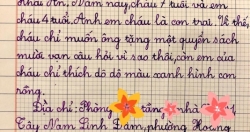 Khải An, Năm nay, cháu 7 tuổi và em
cháu 4 tuổi. Anh em cháu là con trai. Vì thế,
cháu chỉ muốn ông tặng một quyển sách
mười vạn câu hỏi vì sao thôi, còn em của
cháu thích đồ dô màu xanh hình con
rồng.
Địa chỉ: Phòng tầng nhà
Tây Nam Linh Đàm, phường Hoàng